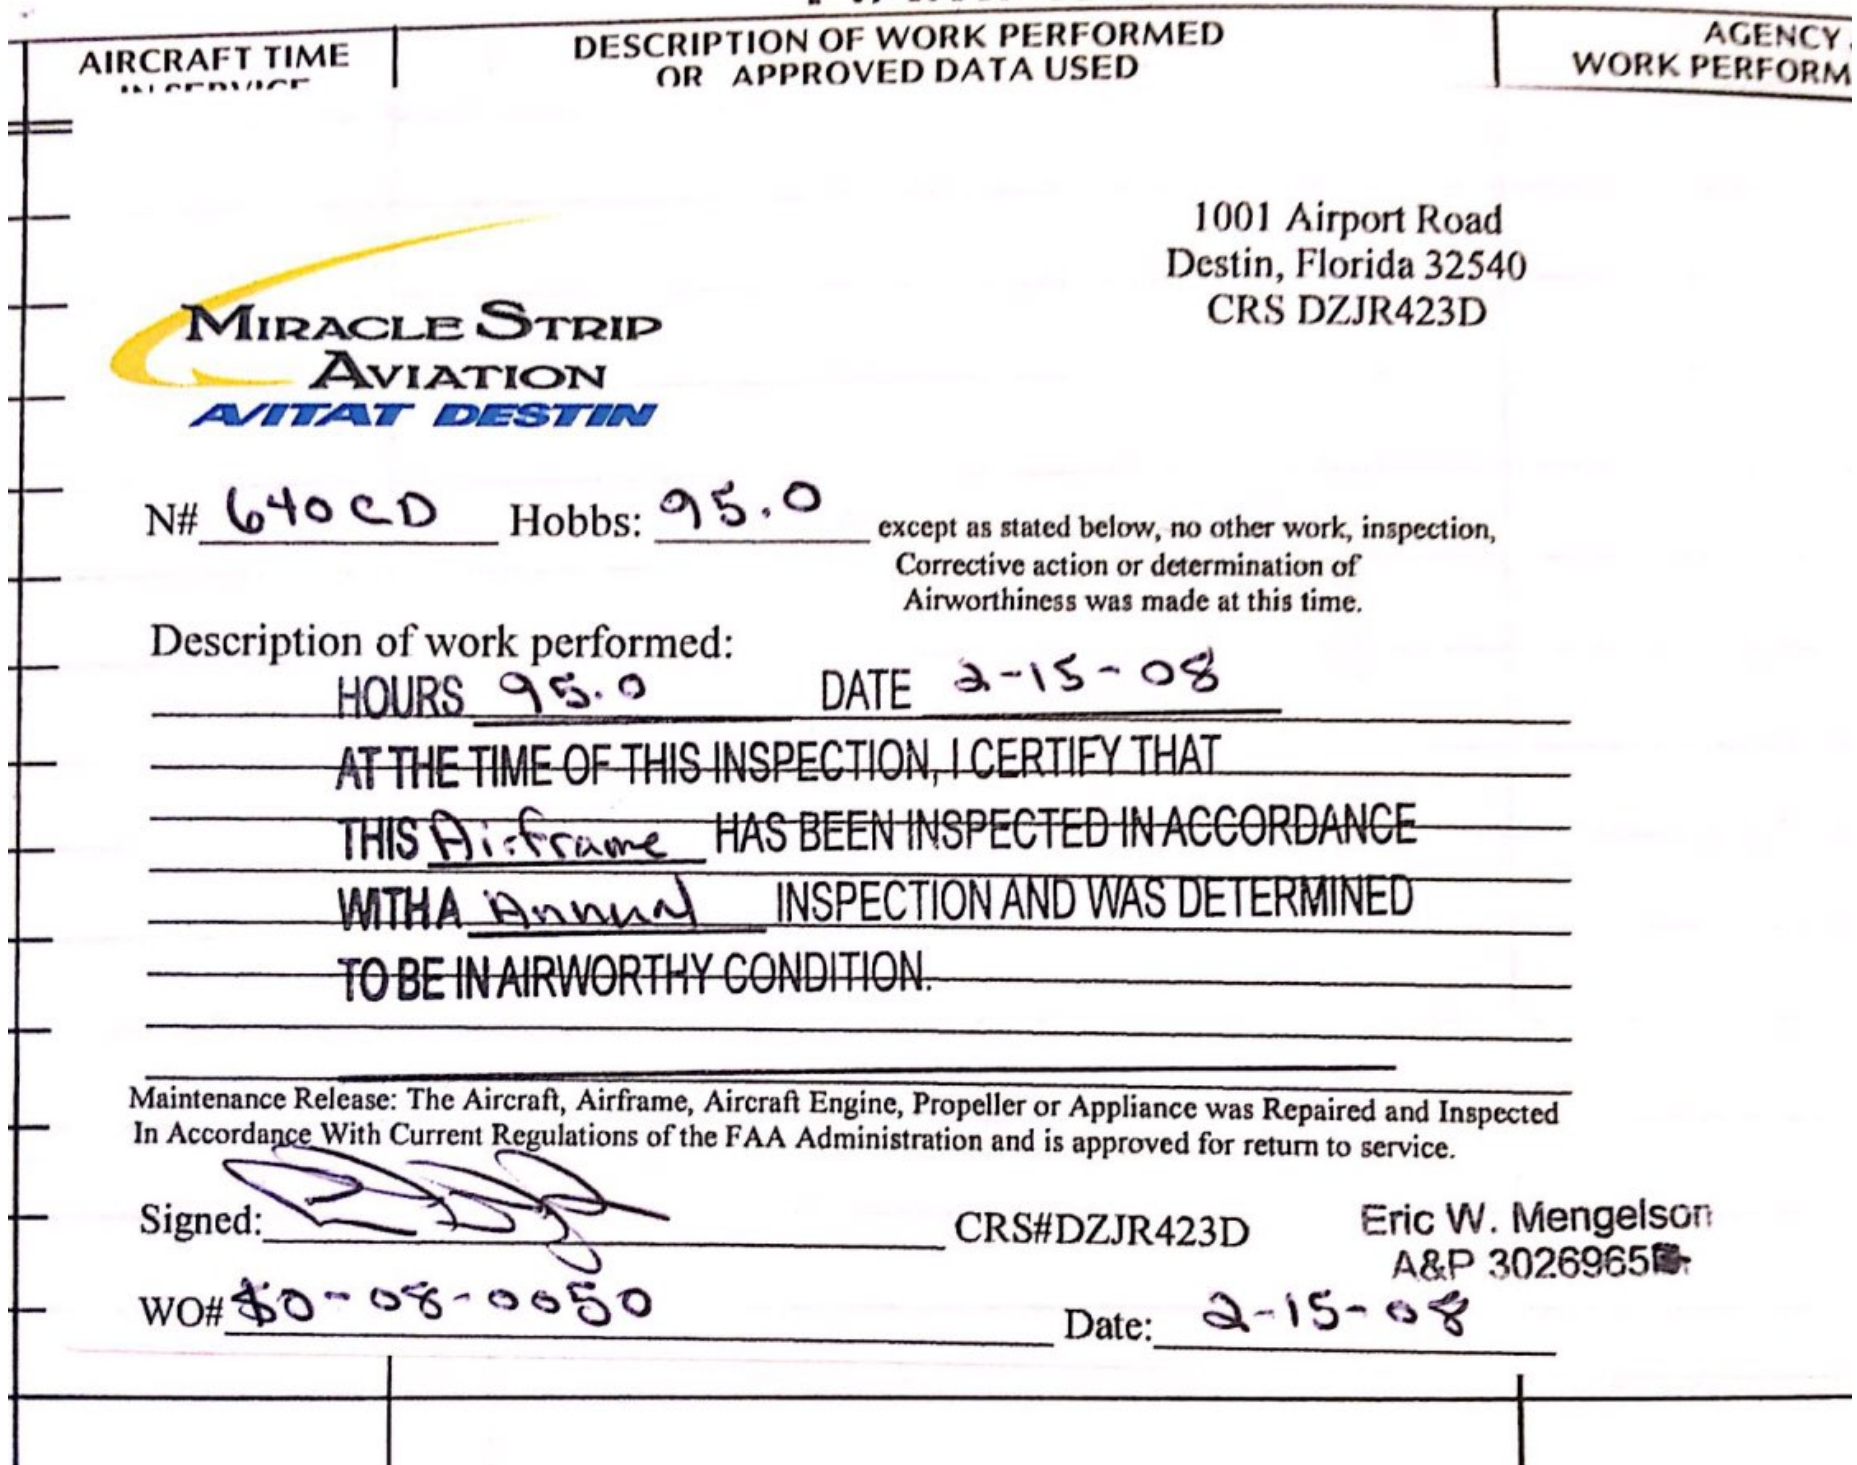 AIRCRAFT TIME
IN SERVICE
DESCRIPTION OF WORK PERFORMED
OR APPROVED DATA USED
AGENCY
WORK PERFORM
1001 Airport Road
Destin, Florida 32540
CRS DZJR423D
MIRACLE STRIP
AVIATION
AVITAT DESTIN
N# 640CD Hobbs: 95.0 except as stated below, no other work, inspection,
Corrective action or determination of
Airworthiness was made at this time.
Description of work performed:
HOURS 95.0 DATE 2-15-08
AT THE TIME OF THIS INSPECTION, I CERTIFY THAT
THIS Airframe HAS BEEN INSPECTED IN ACCORDANCE
WITH A Annual INSPECTION AND WAS DETERMINED
TO BE IN AIRWORTHY CONDITION.
Maintenance Release: The Aircraft, Airframe, Aircraft Engine, Propeller or Appliance was Repaired and Inspected
In Accordance With Current Regulations of the FAA Administration and is approved for return to service.
Signed: CRS#DZJR423D
Eric W. Mengelson
A&P 3026965
WO# 80-08-0050 Date: 2-15-08